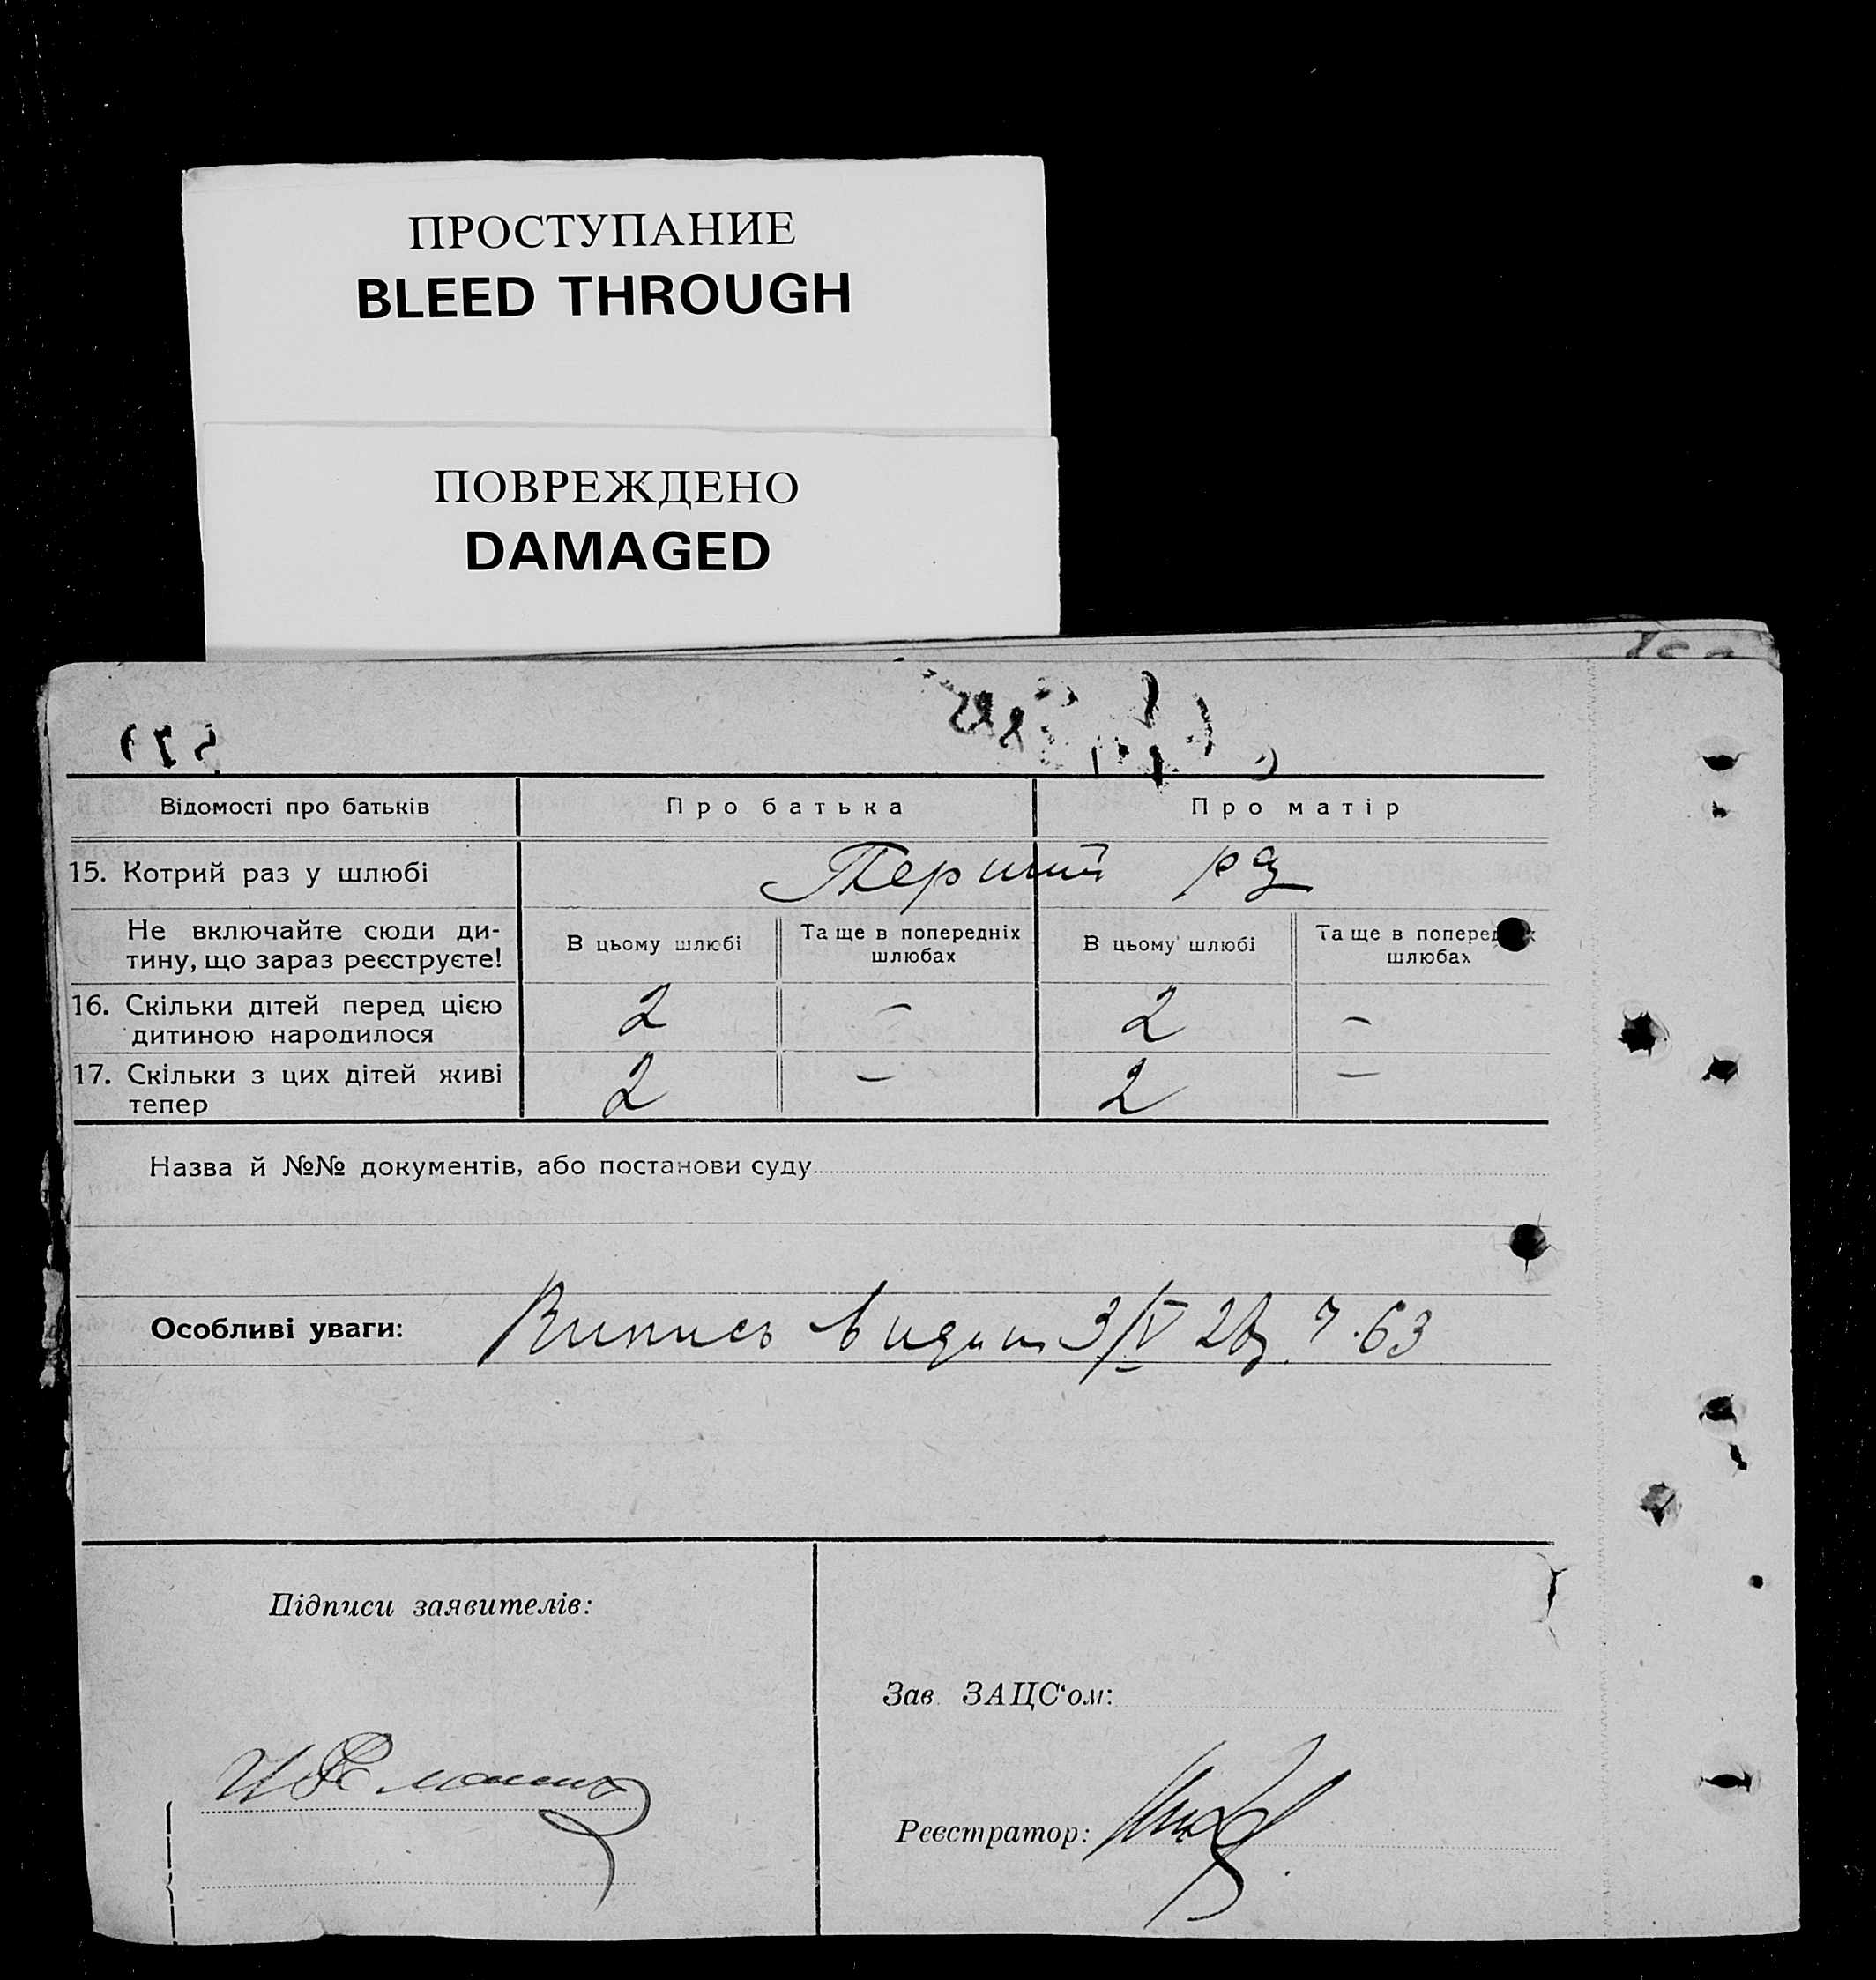 ПРОСТУПАНИЕ
BLEED THROUGH
ПОВРЕЖДЕНО
DAMAGED
Відомості про батьків Про батька Про матір
15. Котрий раз у шлюбі Перший раз
Не включайте сюди ди-
тину, що зараз реєструєте!
В цьому шлюбі
Та ще в попередніх
шлюбах
В цьому шлюбі
Та ще в
шлюбах
16. Скільки дітей перед цією
дитиною народилося
2 – 2 –
17. Скільки з цих дітей живі
тепер
2 – 2 –
Назва й №№ документів, або постанови суду
Особливі уваги: Випись 3/IV 63
Підписи заявителів:
Зав. ЗАЦС'ом:
Реєстратор: